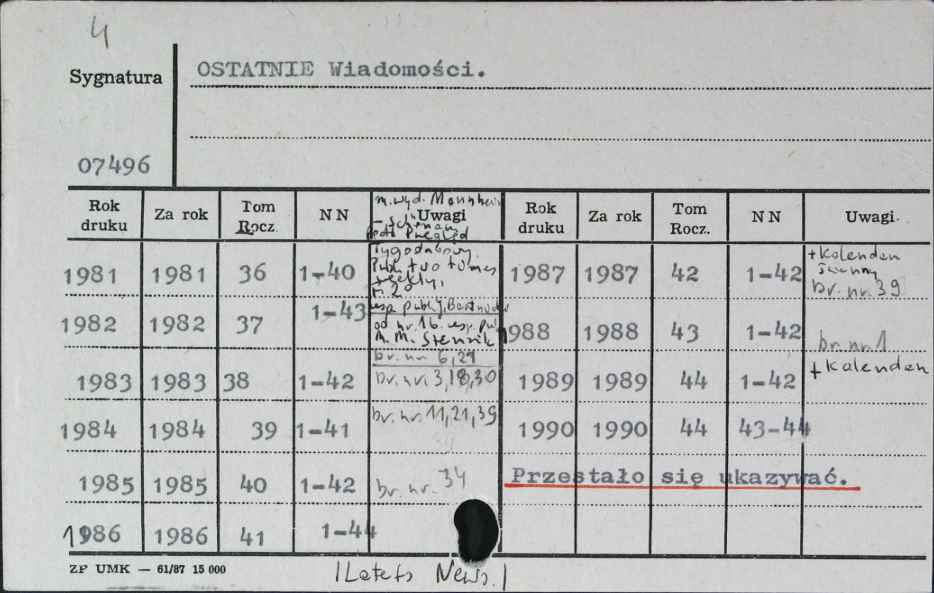 4
Sygnatura
OSTATNIE Wiadomości.
07496
Rok druku Za rok Tom Rocz. NN Uwagi Rok druku Za rok Tom Rocz. NN Uwagi.
m. wyd. Mannheim
- Schönau
Tygodniowy.
1981 1981 36 1-40 1987 1987 42 1-42 + kalendarz br. nr. 39
1982 1982 37 1-43 od nr. 16. br. nr 6,29 1988 1988 43 1-42 br. nr 1
1983 1983 38 1-42 br. nr. 3,18,30 1989 1989 44 1-42 + kalendarz
1984 1984 39 1-41 br. nr. 11,21,39 1990 1990 44 43-44
1985 1985 40 1-42 br. nr. 34 Przestało się ukazywać.
1986 1986 41 1-44
ZF UMK — 61/87 15 000
|Latets News.|